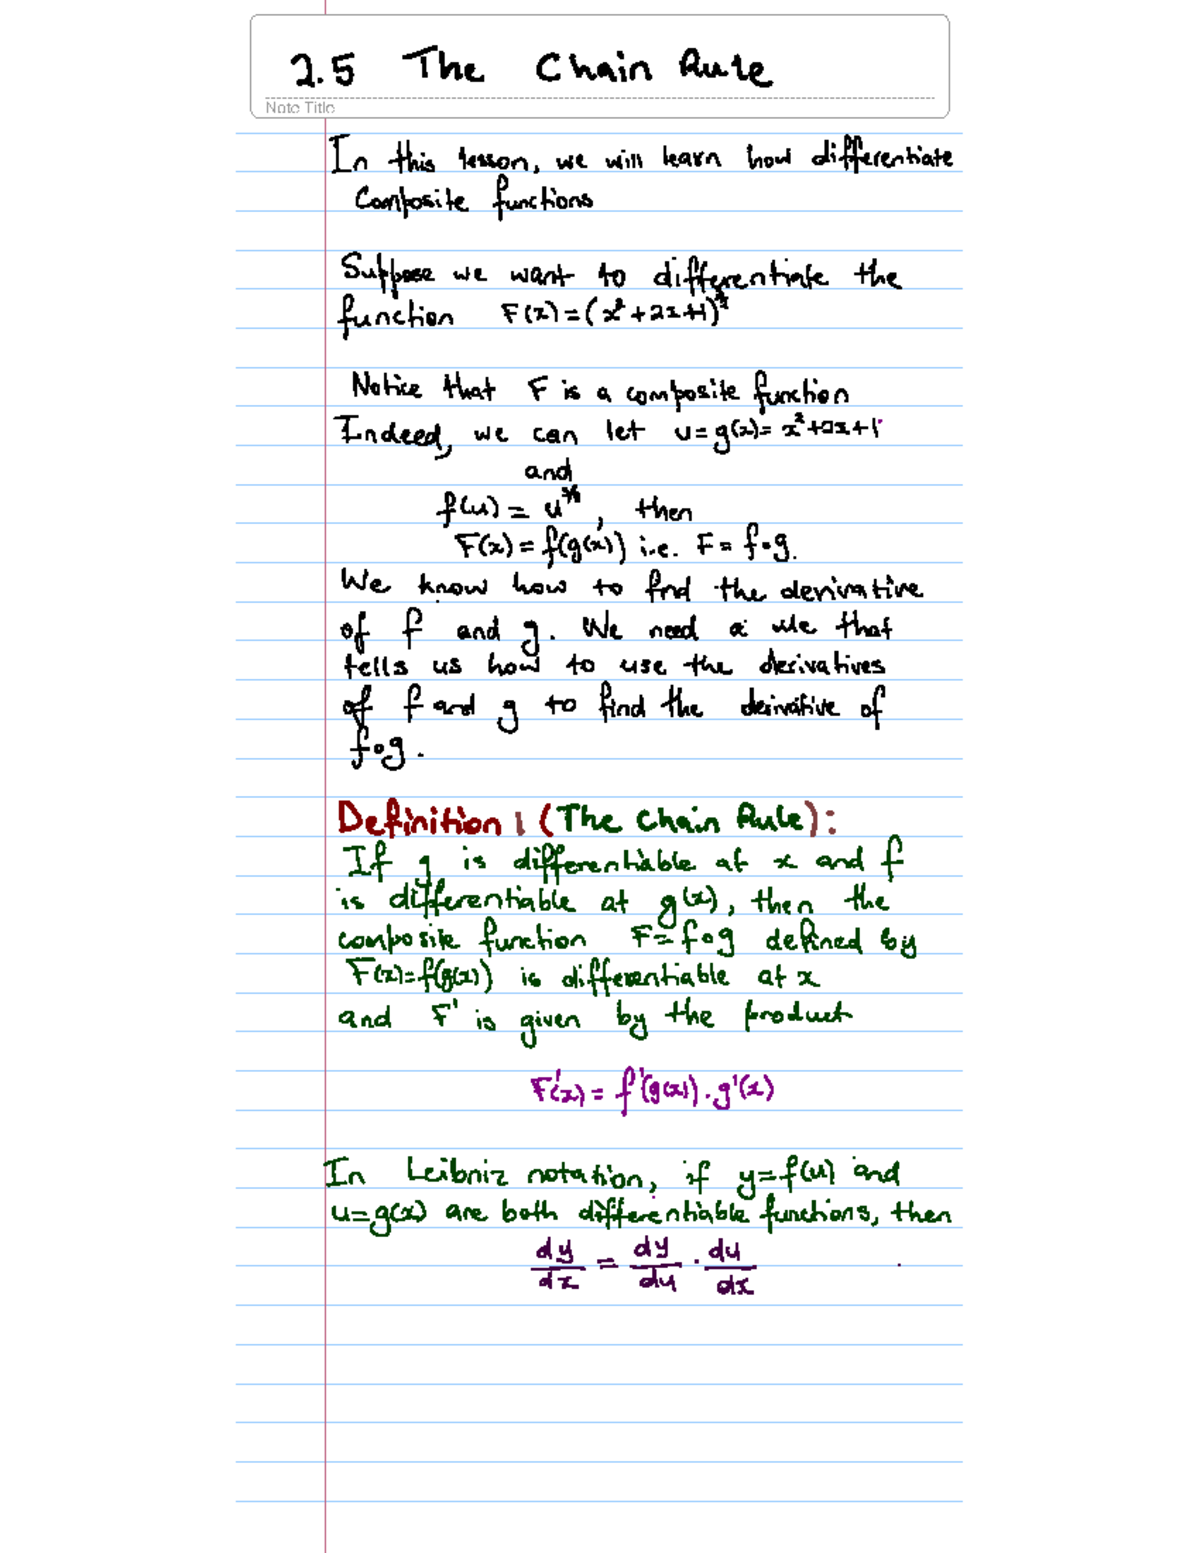 2.5 The Chain Rule
Note Title
In this lesson, we will learn how differentiate
Composite functions
Suppose we want to differentiate the
function F(x) = (x² + 2x+1)
Notice that F is a composite function
Indeed, we can let u = g(x) = x² + 2x + 1
and
f(u) = u , then
F(x) = f(g(x)) i.e. F = f∘g.
We know how to find the derivative
of f and g. We need a rule that
tells us how to use the derivatives
of f and g to find the derivative of
f∘g.
Definition 1 (The Chain Rule):
If g is differentiable at x and f
is differentiable at g(x), then the
composite function F = f∘g defined by
F(x) = f(g(x)) is differentiable at x
and F' is given by the product
F'(x) = f'(g(x)) . g'(x)
In Leibniz notation, if y = f(u) and
u = g(x) are both differentiable functions, then
dy/dx = dy/du . du/dx